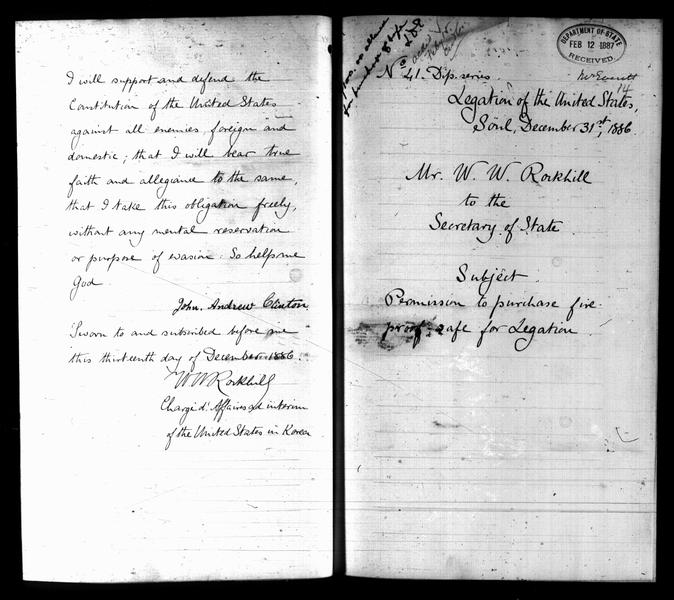 I will support and defend the
Constitution of the United States
against all enemies, foreign and
domestic; that I will bear true
faith and allegiance to the same,
that I take this obligation freely,
without any mental reservation
or purpose of evasion. So help me
God
John. Andrew Clinton
Sworn to and subscribed before me
this thirteenth day of December 1886.
W W Rockhill
Chargé d'Affaires ad interim
of the United States in Korea
DEPARTMENT OF STATE
FEB 12 1887
RECEIVED.
Mr Everett
14
No 41. Dip. series
Legation of the United States,
Söul, December 31st, 1886.
Mr. W. W. Rockhill
to the
Secretary of State
Subject
Permission to purchase fire
proof safe for Legation